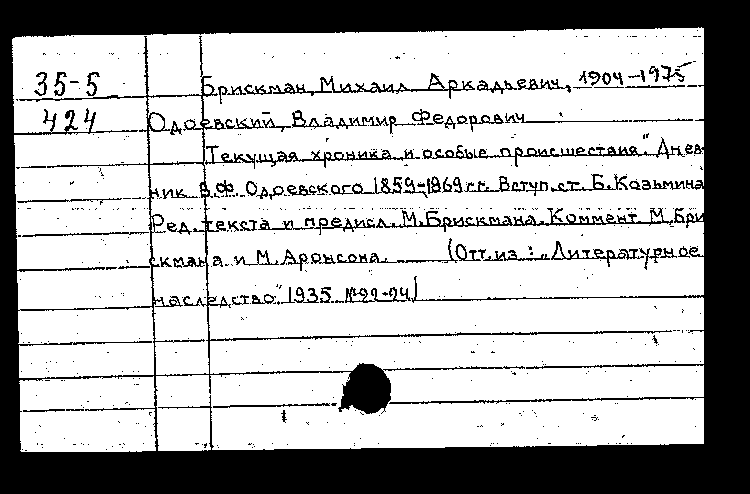 35-5 Брискман, Михаил Аркадьевич, 1904-1975
424 Одоевский, Владимир Федорович
Текущая хроника и особые происшествия". Днев-
ник В.Ф. Одоевского 1859-1869 г.г. Вступ. ст. Б. Козьмина
Ред. текста и предисл. М. Брискмана. Коммент М. Бри
скмана и М. Аронсона. (Отт. из: „Литературное
наследство". 1935 №22-24)